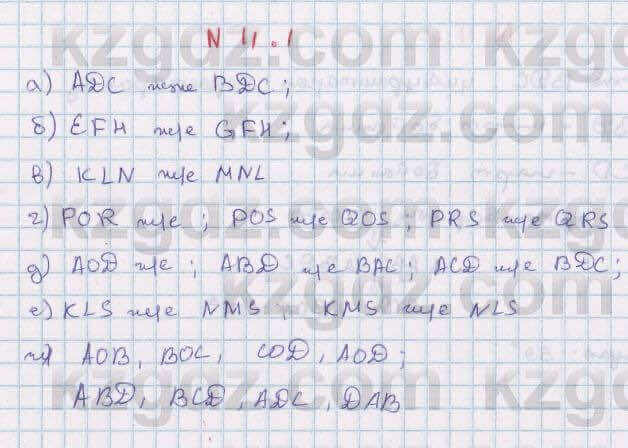 N 11.1
а) ADC және BDC;
б) EFH және GFH;
в) KLN және MNL
г) POR және ; POS және QOS; PRS және QRS
д) AOD және ; ABD және BAC; ACD және BDC;
е) KLS және NMS; KMS және NLS
ж) AOB, BOC, COD, AOD;
ABD, BCD, ADC, DAB
kzgdz.com